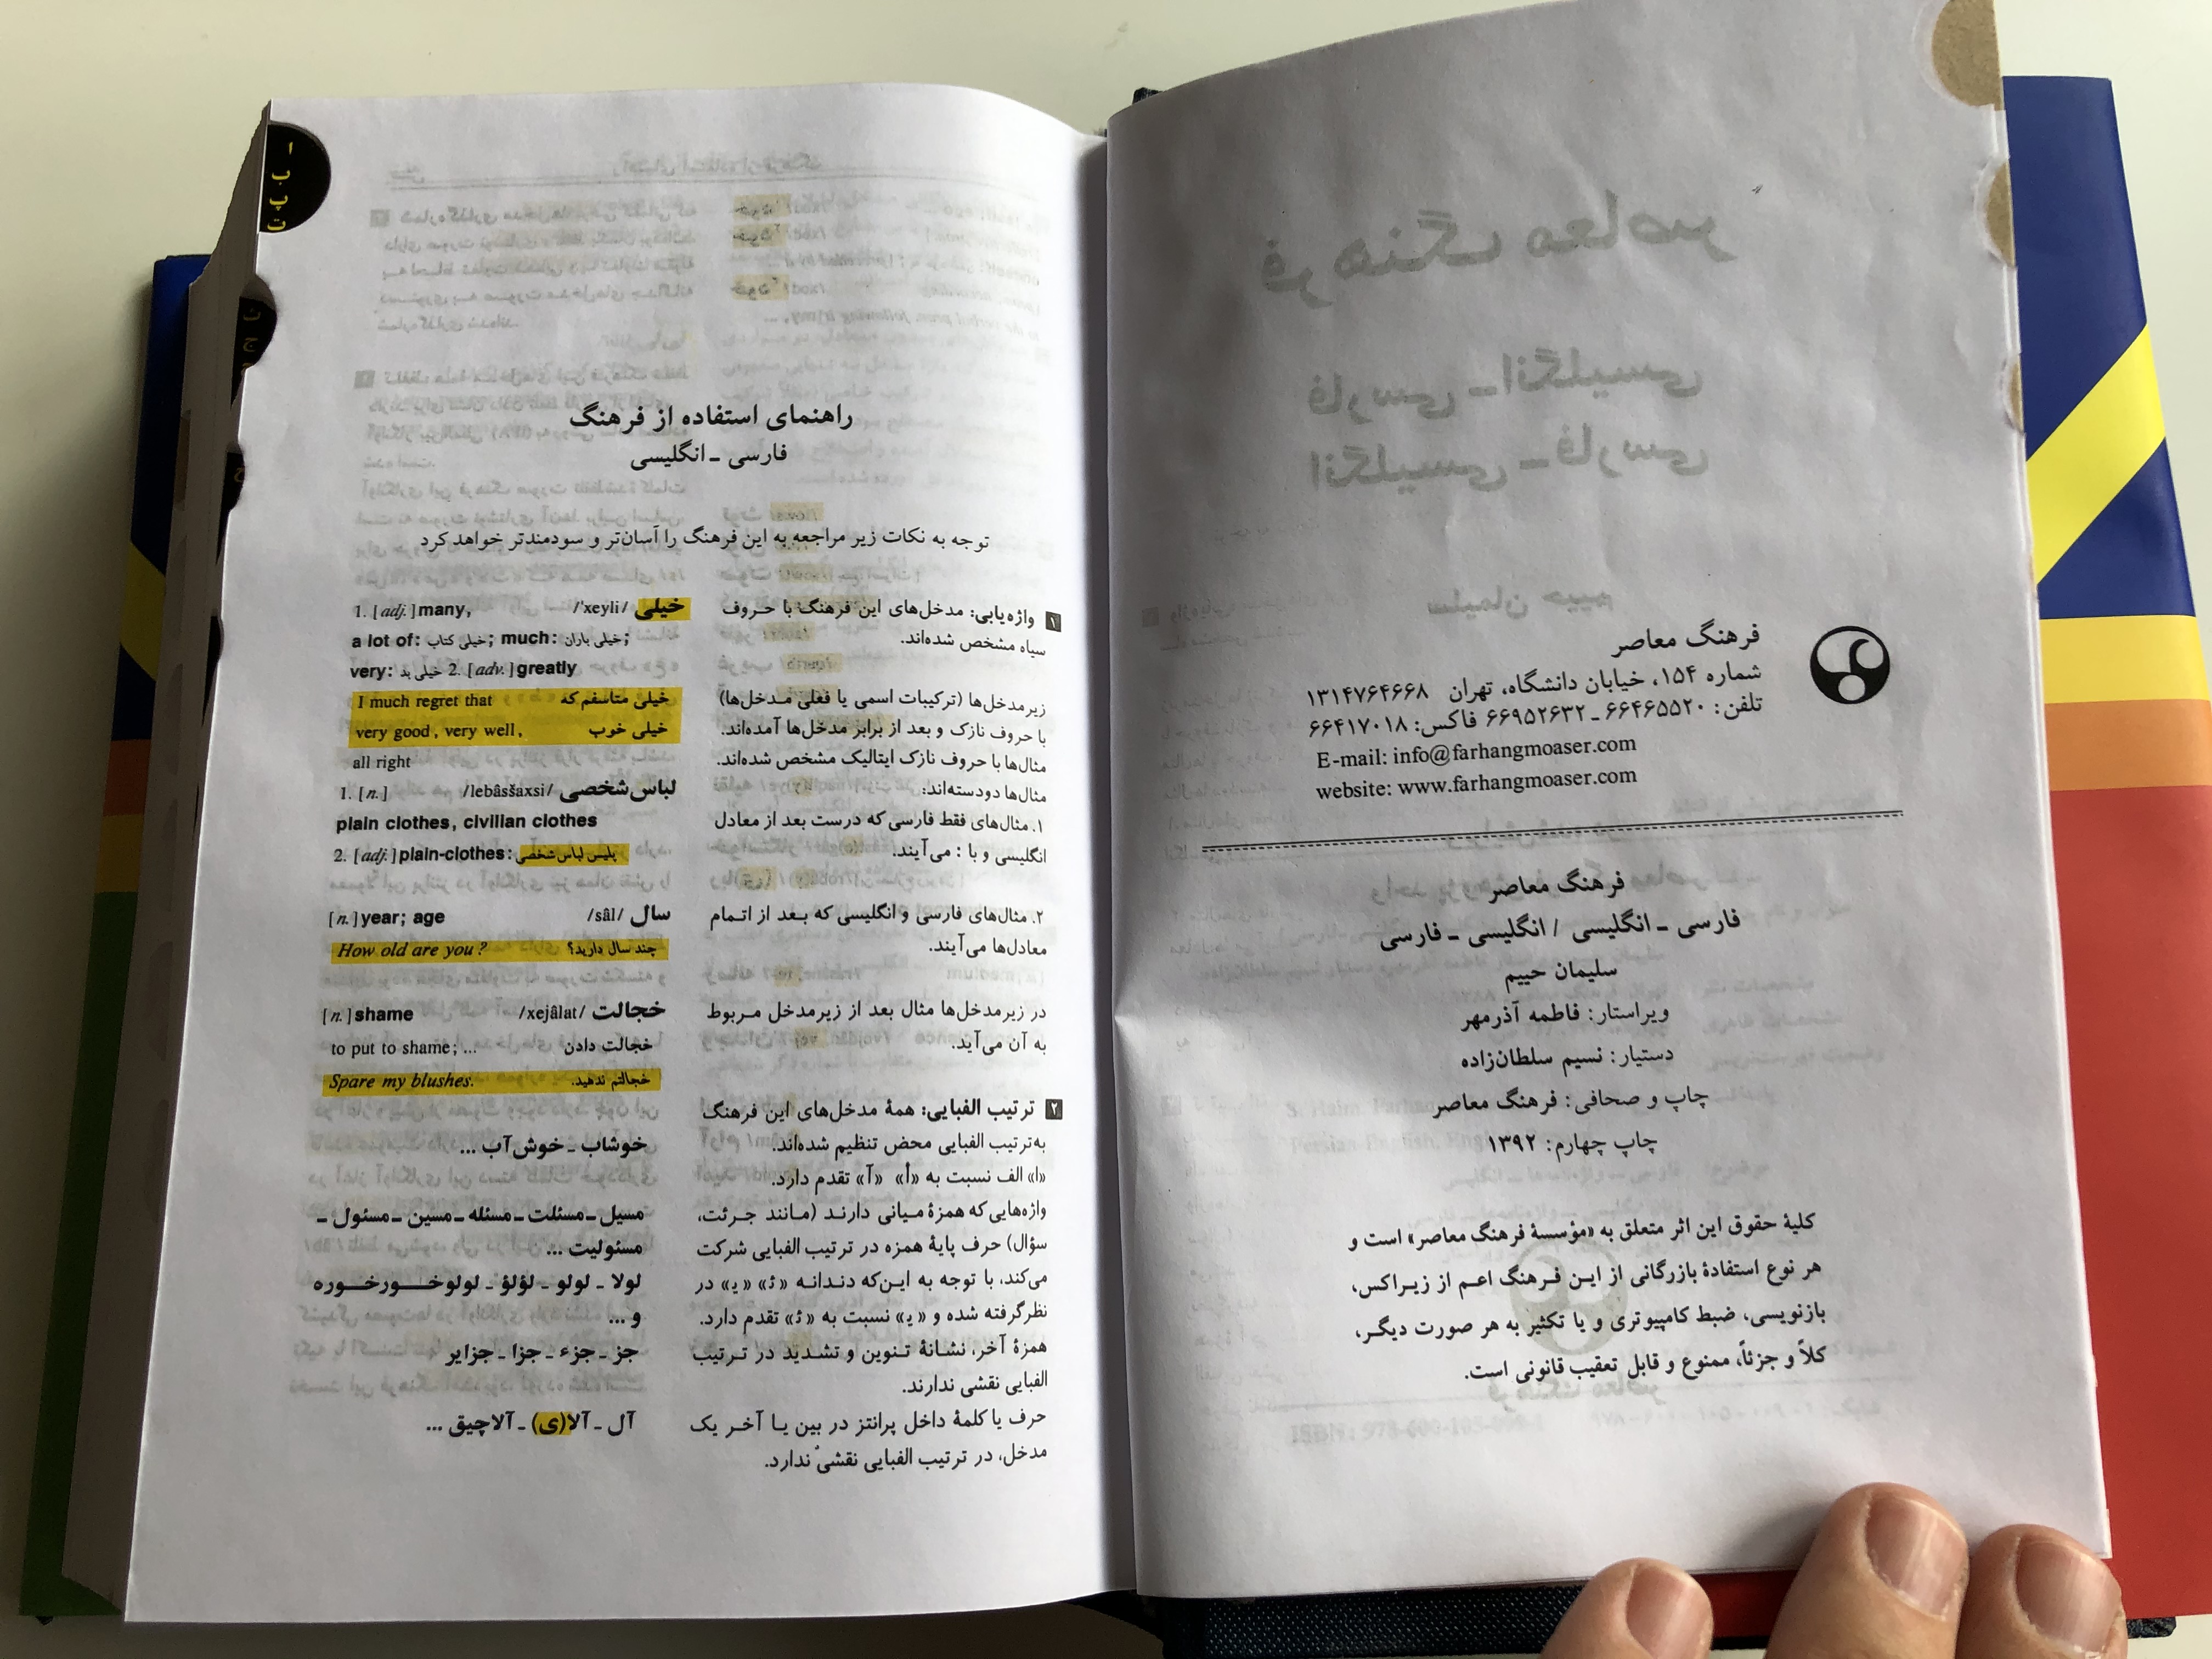 فرهنگ معاصر
شماره ۱۵۴، خیابان دانشگاه، تهران ۱۳۱۴۷۶۴۶۶۸
تلفن: ۶۶۴۶۵۵۲۰ ـ ۶۶۹۵۲۶۳۲ فاکس: ۶۶۴۱۷۰۱۸
E-mail: info@farhangmoaser.com
website: www.farhangmoaser.com
فرهنگ معاصر
فارسی ـ انگلیسی / انگلیسی ـ فارسی
سلیمان حییم
ویراستار: فاطمه آذرمهر
دستیار: نسیم سلطان‌زاده
چاپ و صحافی: فرهنگ معاصر
چاپ چهارم: ۱۳۹۲
کلیهٔ حقوق این اثر متعلق به «مؤسسهٔ فرهنگ معاصر» است و
هر نوع استفادهٔ بازرگانی از این فرهنگ اعم از زیراکس،
بازنویسی، ضبط کامپیوتری و یا تکثیر به هر صورت دیگر،
کلاً و جزئاً، ممنوع و قابل تعقیب قانونی است.
راهنمای استفاده از فرهنگ
فارسی ـ انگلیسی
توجه به نکات زیر مراجعه به این فرهنگ را آسان‌تر و سودمندتر خواهد کرد
۱ واژه‌یابی: مدخل‌های این فرهنگ با حروف
سیاه مشخص شده‌اند.
زیرمدخل‌ها (ترکیبات اسمی یا فعلی مدخل‌ها)
با حروف نازک و بعد از برابر مدخل‌ها آمده‌اند.
مثال‌ها با حروف نازک ایتالیک مشخص شده‌اند.
مثال‌ها دودسته‌اند:
۱. مثال‌های فقط فارسی که درست بعد از معادل
انگلیسی و با : می‌آیند.
۲. مثال‌های فارسی و انگلیسی که بعد از اتمام
معادل‌ها می‌آیند.
در زیرمدخل‌ها مثال بعد از زیرمدخل مربوط
به آن می‌آید.
۲ ترتیب الفبایی: همهٔ مدخل‌های این فرهنگ
به‌ترتیب الفبایی محض تنظیم شده‌اند.
«ا» الف نسبت به «أ» «آ» تقدم دارد.
واژه‌هایی که همزهٔ میانی دارند (مانند جرئت،
سؤال) حرف پایهٔ همزه در ترتیب الفبایی شرکت
می‌کند، با توجه به این‌که دندانه «ئ» «ی» در
نظرگرفته شده و «ی» نسبت به «ئ» تقدم دارد.
همزهٔ آخر، نشانهٔ تنوین و تشدید در ترتیب
الفبایی نقشی ندارند.
حرف یا کلمهٔ داخل پرانتز در بین یا آخر یک
مدخل، در ترتیب الفبایی نقشی ندارد.
خیلی /ˈxeyli/ 1. [adj.] many,
a lot of: خیلی کتاب; much: خیلی باران;
very: خیلی بد 2. [adv.] greatly
خیلی متاسفم که I much regret that
خیلی خوب very good, very well,
all right
لباس‌شخصی /lebâsšaxsi/ 1. [n.]
plain clothes, civilian clothes
2. [adj.] plain-clothes: پلیس لباس‌شخصی
سال /sâl/ [n.] year; age
چند سال دارید؟ How old are you?
خجالت /xejâlat/ [n.] shame
خجالت دادن to put to shame; ...
خجالتم ندهید. Spare my blushes.
خوشاب ـ خوش‌آب ...
مسیل ـ مسئلت ـ مسئله ـ مسین ـ مسئول ـ
مسئولیت ...
لولا ـ لولو ـ لؤلؤ ـ لولوخورخوره
و ...
جز ـ جزء ـ جزا ـ جزایر
آل ـ آلا(ی) ـ آلاچیق ...
ا
ب
پ
ت